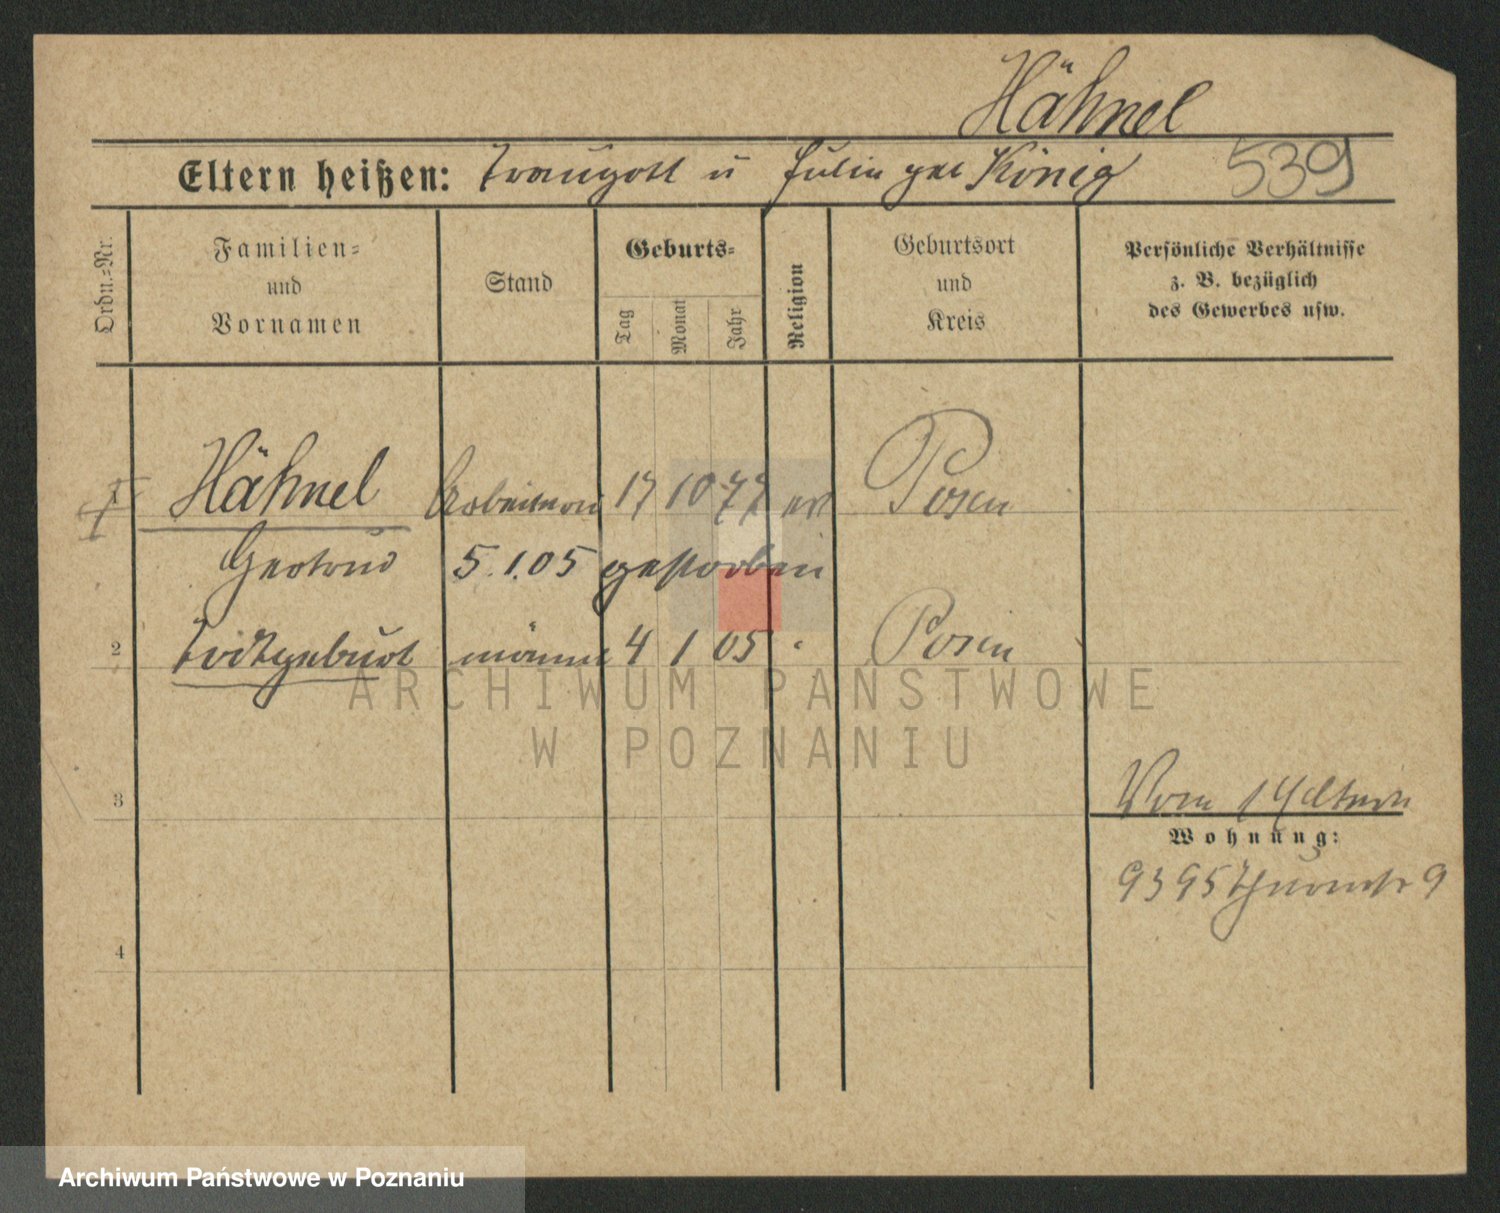 Hähnel
Eltern heißen: Traugott u Julie geb König 539
Ordn.=Nr.
Familien=
und
Vornamen
Stand
Geburts=
Tag
Monat
Jahr
Religion
Geburtsort
und
Kreis
Persönliche Verhältnisse
z. B. bezüglich
des Gewerbes usw.
1 Hähnel Arbeiterin 17 10 77 ev Posen
Gertrud 5.1.05 gestorben
2 Todtgeburt männl 4 1 05 " Posen
ARCHIWUM PAŃSTWOWE
W POZNANIU
3
Wohnung:
4
Archiwum Państwowe w Poznaniu